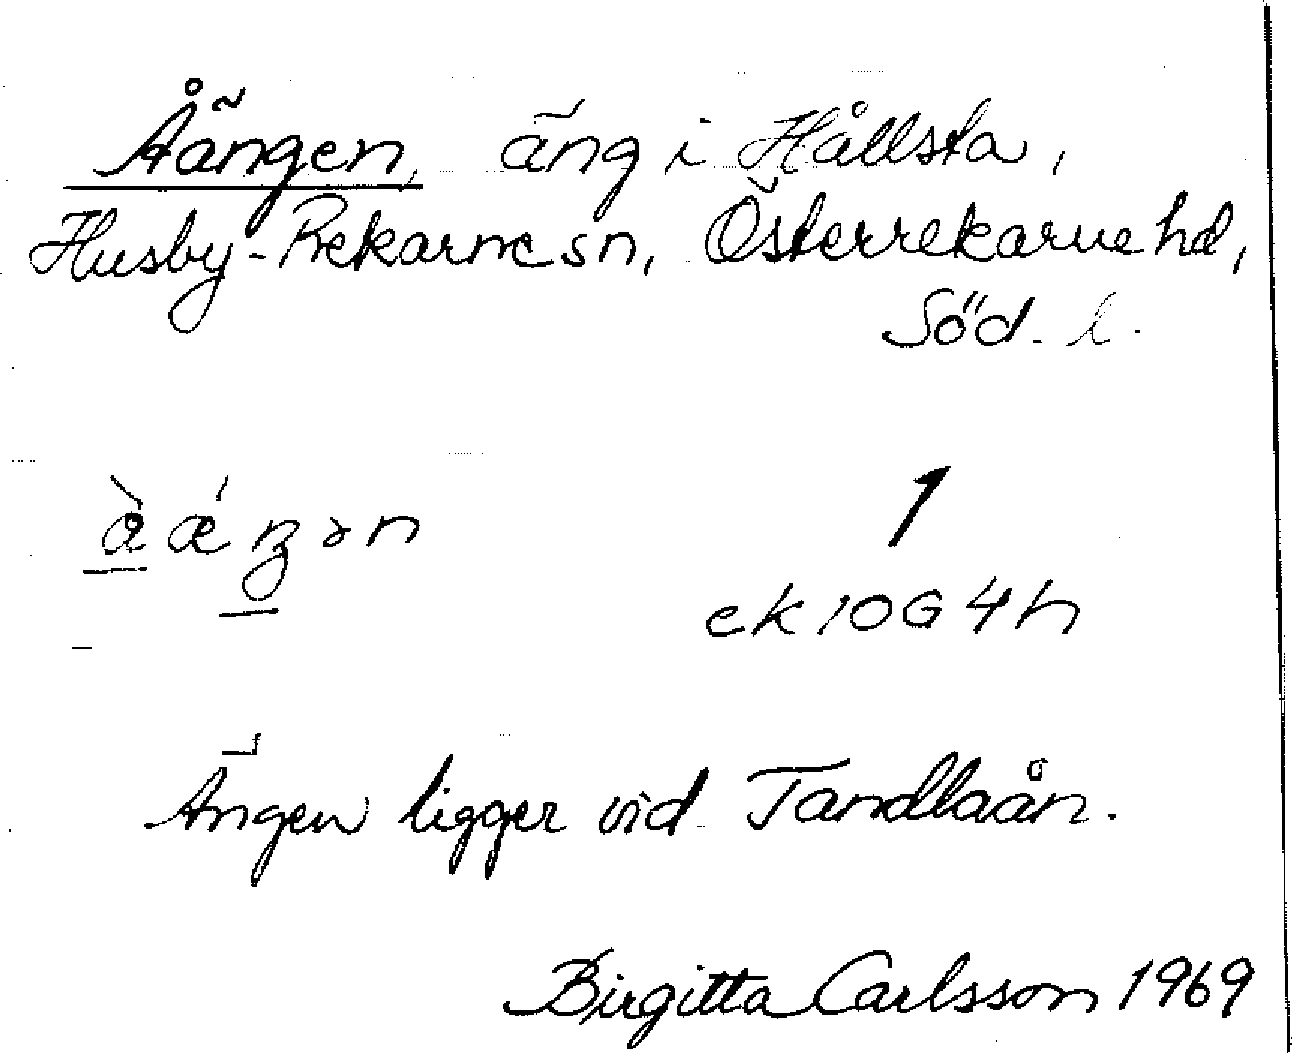 Åängen, äng i Hållsta,
Husby-Rekarne sn, Österrekarne hd,
Söd. l.
å̀ ǽ ŋ ə n
1
ek 10G 4h
Ängen ligger vid Tandlaån.
Birgitta Carlsson 1969